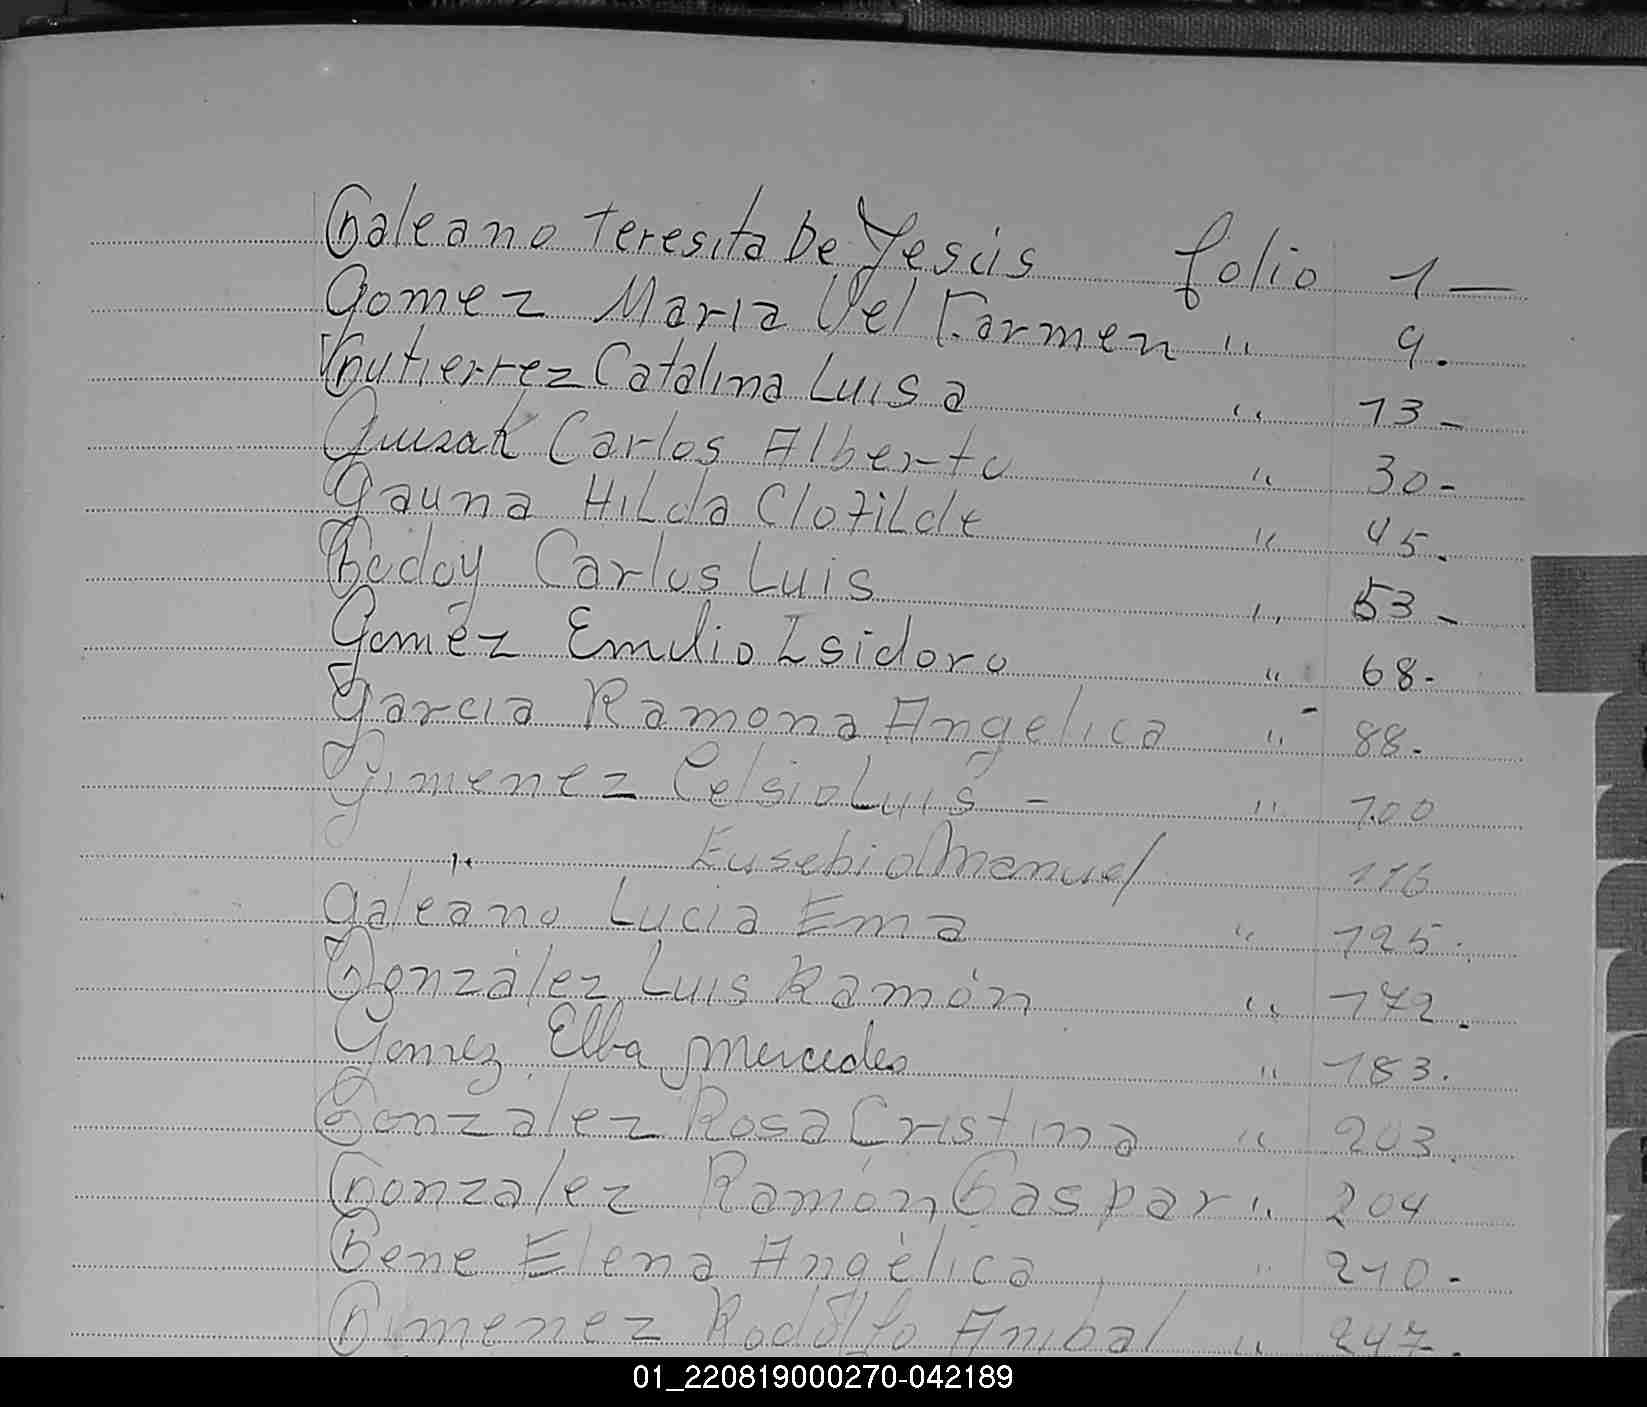 Galeano Teresita De Jesús folio 1 —
Gomez Maria Del Carmen " 9.
Gutierrez Catalina Luisa " 13 -
Carlos Alberto " 30 -
Gauna Hilda Clotilde " 45.
Godoy Carlos Luis " 53 -
Goméz Emilio Isidoro " 68 -
Garcia Ramona Angelica " 88.
Gimenez Celsio Luis - " 100
" Eusebio Manuel 116
Galeano Lucia Ema " 125.
González Luis Ramón " 172.
Gomez Elba Mercedes " 183.
González Rosa Cristina " 203.
Gonzalez Ramón Gaspar " 204
Gene Elena Angélica " 210 -
Gimenez Rodolfo Anibal " 247.
01_220819000270-042189